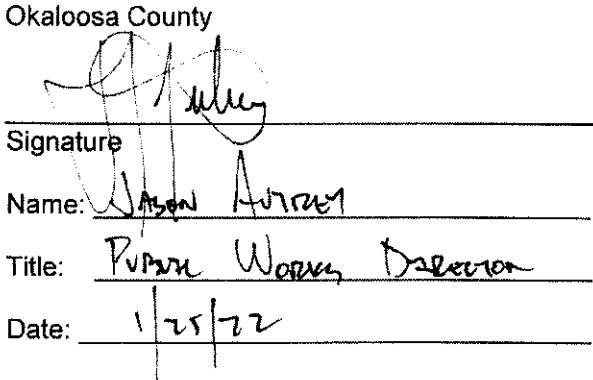 Okaloosa County
Signature
Name: Jason Autrey
Title: Public Works Director
Date: 1/25/22